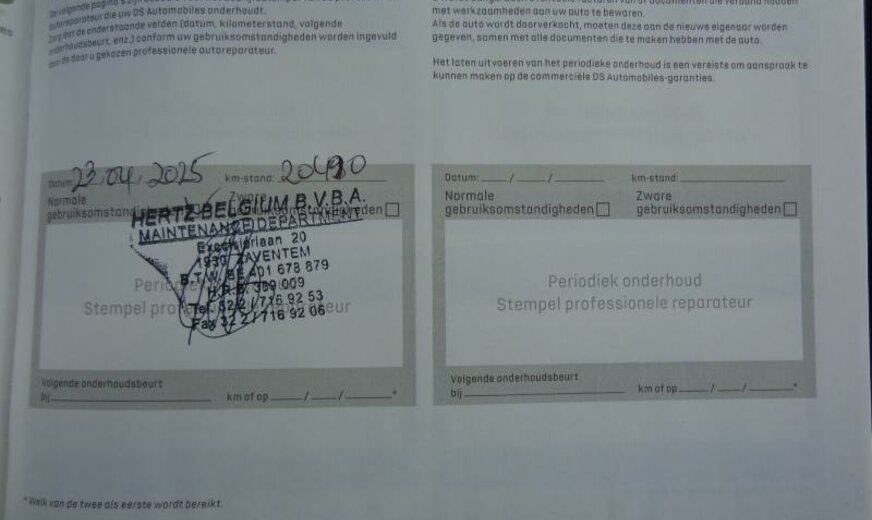 De volgende pagina's zijn
autoreparateur die uw DS Automobiles onderhoudt.
Zorg dat de onderstaande velden (datum, kilometerstand, volgende
onderhoudsbeurt, enz.) conform uw gebruiksomstandigheden worden ingevuld
door de door u gekozen professionele autoreparateur.
documenten die verband houden
met werkzaamheden aan uw auto te bewaren.
Als de auto wordt doorverkocht, moeten deze aan de nieuwe eigenaar worden
gegeven, samen met alle documenten die te maken hebben met de auto.
Het laten uitvoeren van het periodieke onderhoud is een vereiste om aanspraak te
kunnen maken op de commerciële DS Automobiles-garanties.
Datum: 23/04/2025 km-stand:
Normale Zware
gebruiksomstandigheden gebruiksomstandigheden
HERTZ BELGIUM B.V.B.A.
MAINTENANCE DEPARTMENT
20
1930 ZAVENTEM
B.T.W. BE 401 678 879
H.R.B. 389 009
Tel. 32 2 / 716 92 53
Fax 32 2 / 716 92 06
Periodiek onderhoud
Stempel professionele reparateur
Volgende onderhoudsbeurt
bij km of op / / *
Datum: / / km-stand:
Normale Zware
gebruiksomstandigheden gebruiksomstandigheden
Periodiek onderhoud
Stempel professionele reparateur
Volgende onderhoudsbeurt
bij km of op / / *
* Welk van de twee als eerste wordt bereikt.